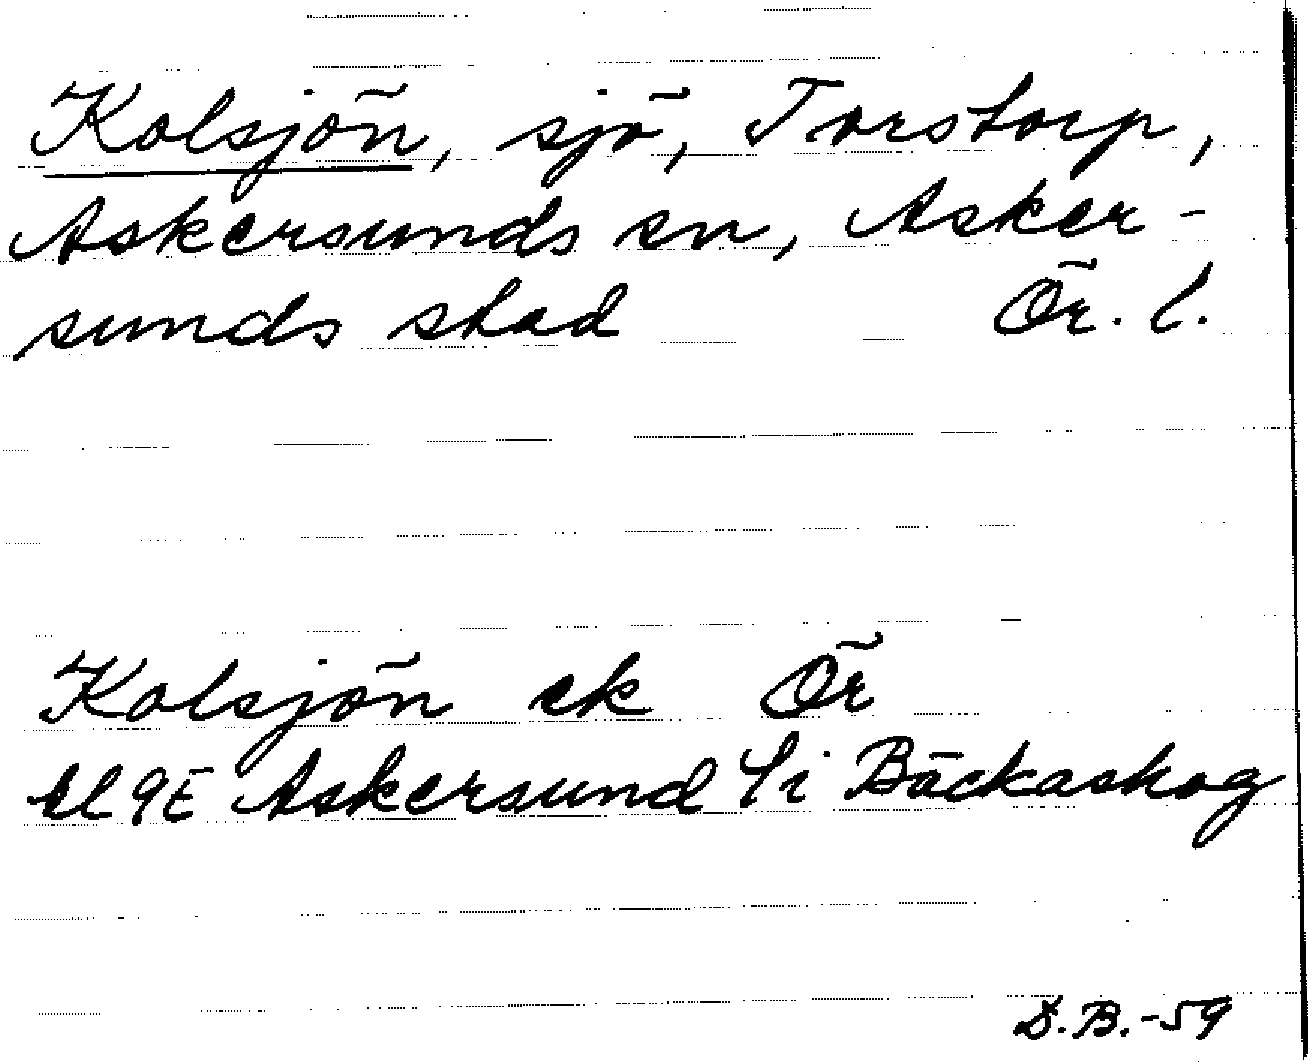 Kolsjön, sjö, Torstorp,
Askersunds sn, Asker-
sunds stad Ör. l.
Kolsjön ek Ör
9E Askersund Bäckaskog
D.B.-59